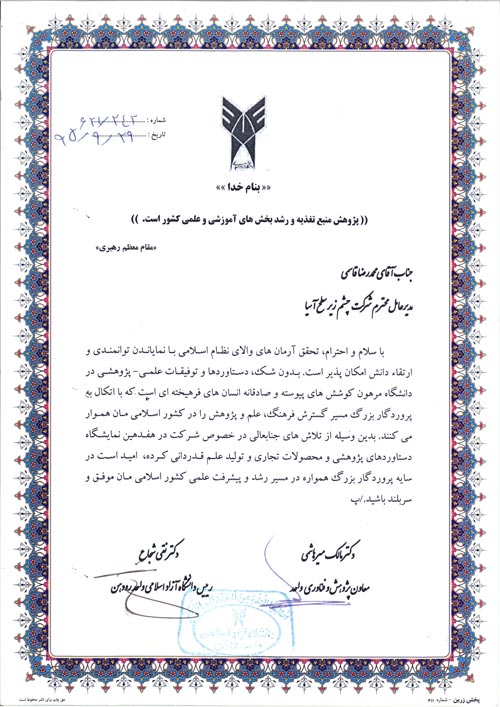 شماره :
تاریخ : ۹۵/۹/۲۹
«« بنام خدا »»
(( پژوهش منبع تغذیه و رشد بخش های آموزشی و علمی کشور است. ))
«مقام معظم رهبری»
جناب آقای محمدرضا قاسمی
مدیرعامل محترم شرکت چشم زیر سطح آسیا
با سلام و احترام، تحقق آرمان های والای نظام اسلامی با نمایاندن توانمندی و
ارتقاء دانش امکان پذیر است. بدون شک، دستاوردها و توفیقات علمی- پژوهشی در
دانشگاه مرهون کوشش های پیوسته و صادقانه انسان های فرهیخته ای است که با اتکال به
پروردگار بزرگ مسیر گسترش فرهنگ، علم و پژوهش را در کشور اسلامی مان هموار
می کنند. بدین وسیله از تلاش های جنابعالی در خصوص شرکت در هفدهمین نمایشگاه
دستاوردهای پژوهشی و محصولات تجاری و تولید علم قدردانی کرده، امید است در
سایه پروردگار بزرگ همواره در مسیر رشد و پیشرفت علمی کشور اسلامی مان موفق و
سربلند باشید./پ
دکتر بابک میرهاشمی
معاون پژوهش و فناوری واحد
دکتر تقی شجاع
رییس دانشگاه آزاد اسلامی واحد رودهن
پخش زرین - شماره ۴۱۱
حق چاپ برای ناشر محفوظ است.